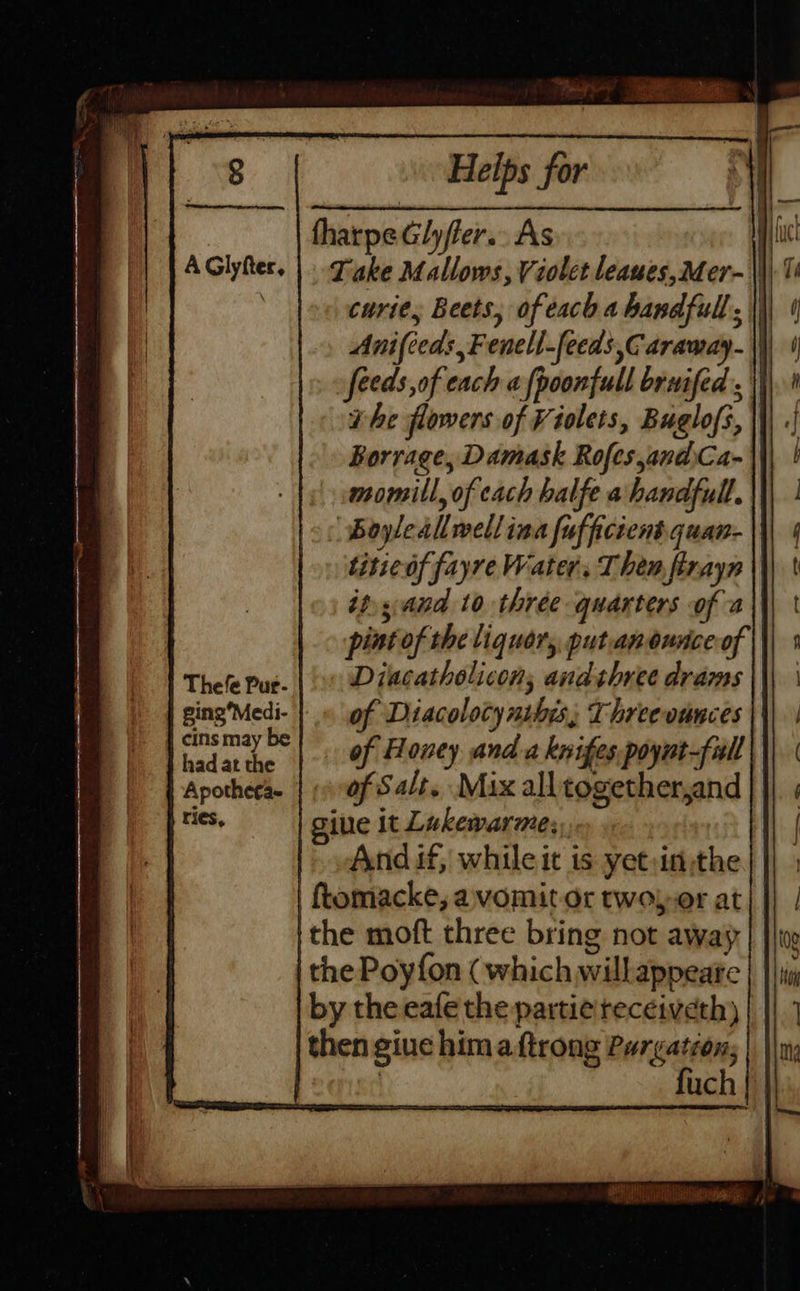 8
Helps for
ſharpe Glyſter. As
A Glyſter.
Take Mallows, Violet leaues, Mer-
curie, Beets, of each a handfull;
Aniſeeds, Fenell-ſeeds, Caraway-
ſeeds, of each a ſpoonfull bruiſed;
the flowers of Violets, Bugloſs,
Borrage, Damask Roſes, and Ca-
momill, of each halfe a handfull.
Boyle all well in a ſufficient quan-
titie of fayre Water. Then ſtrayn
it; and to three quarters of a
pint of the liquor, put an ounce of
Diacatholicon, and three drams
of Diacolocynthis; Three ounces
of Honey and a knifes poynt-full
of Salt. Mix all together, and
giue it Lukewarme.
Theſe Pur-
ging Medi-
cins may be
had at the
Apotheca-
ries.
And if, while it is yet in the
ſtomacke, a vomit or two, or at
the moſt three bring not away
the Poyſon (which will appeare
by the eaſe the partie receiveth)
then giue him a ſtrong Purgation,
ſuch